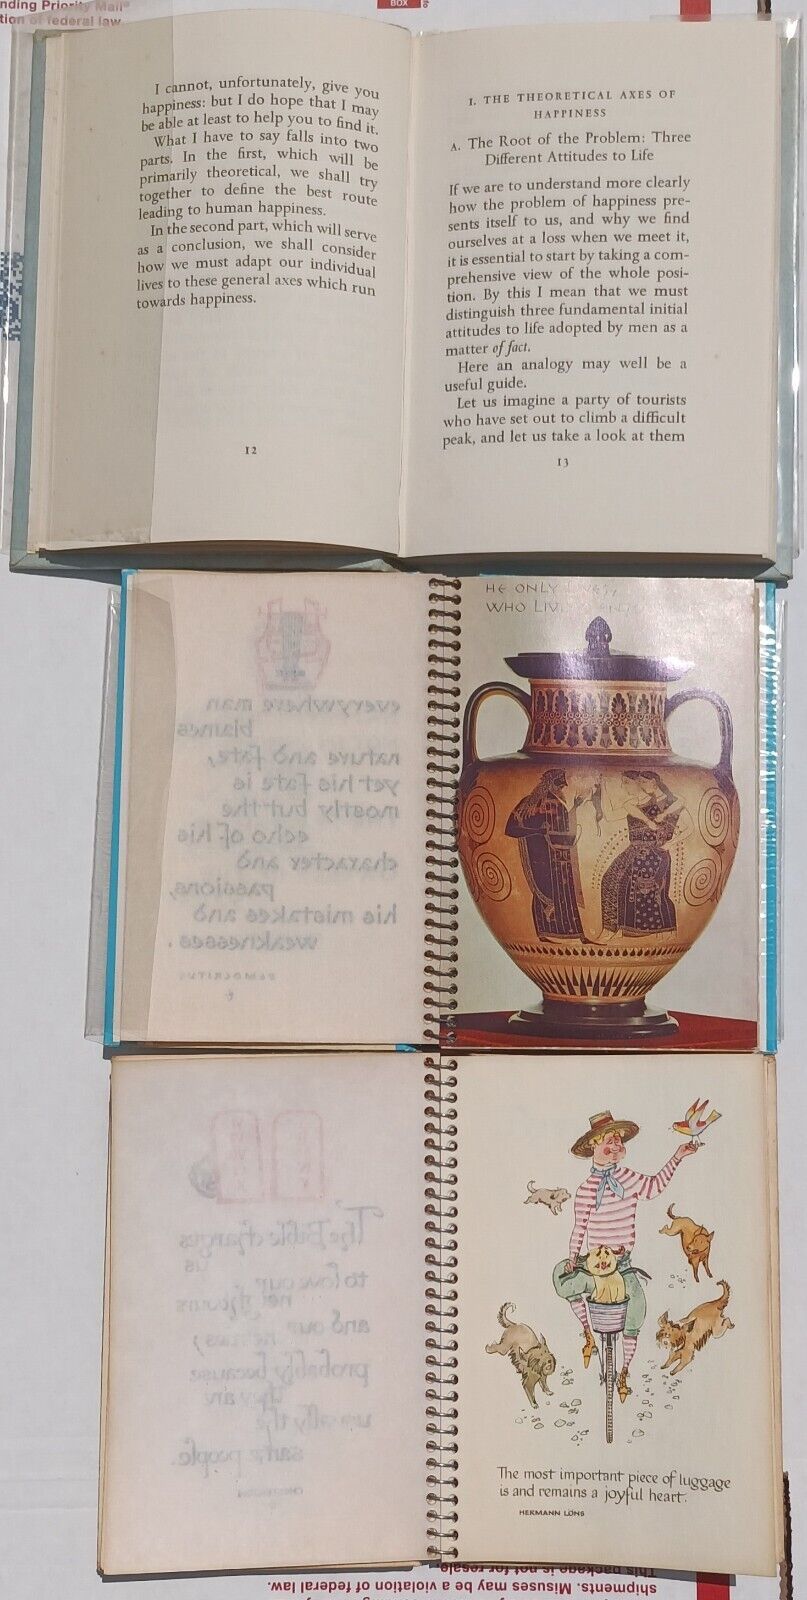 nding Priority Mail®
tion of federal law.
BOX
I cannot, unfortunately, give you
happiness: but I do hope that I may
be able at least to help you to find it.
What I have to say falls into two
parts. In the first, which will be
primarily theoretical, we shall try
together to define the best route
leading to human happiness.
In the second part, which will serve
as a conclusion, we shall consider
how we must adapt our individual
lives to these general axes which run
towards happiness.
12
I. THE THEORETICAL AXES OF
HAPPINESS
A. The Root of the Problem: Three
Different Attitudes to Life
If we are to understand more clearly
how the problem of happiness pre-
sents itself to us, and why we find
ourselves at a loss when we meet it,
it is essential to start by taking a com-
prehensive view of the whole posi-
tion. By this I mean that we must
distinguish three fundamental initial
attitudes to life adopted by men as a
matter of fact.
Here an analogy may well be a
useful guide.
Let us imagine a party of tourists
who have set out to climb a difficult
peak, and let us take a look at them
13
everywhere man
blames
nature and fate,
yet his fate is
mostly but the
echo of his
character and
passions,
his mistakes and
weaknesses.
DEMOCRITUS
HE ONLY
WHO
The Bible charges
us
to love our
neighbours
and our
enemies;
probably because
they are
usually the
same people.
CHESTERTON
The most important piece of luggage
is and remains a joyful heart.
HERMANN LÖNS
This package is not for resale.
shipments. Misuses may be a violation of federal law.